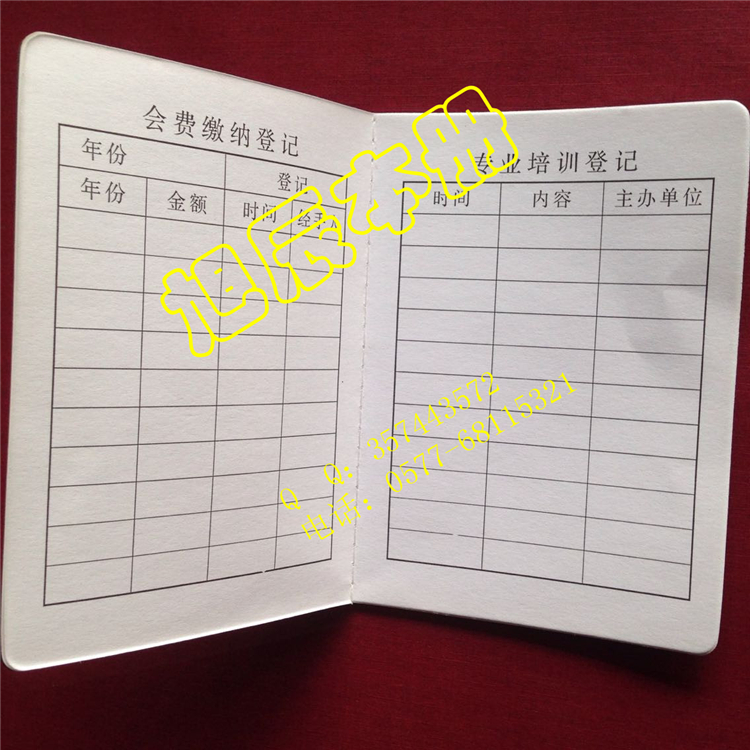 会费缴纳登记
年份 登记
年份 金额 时间 经手人
专业培训登记
时间 内容 主办单位
旭辰本册
Q Q：357443572
电话：0577-68115321